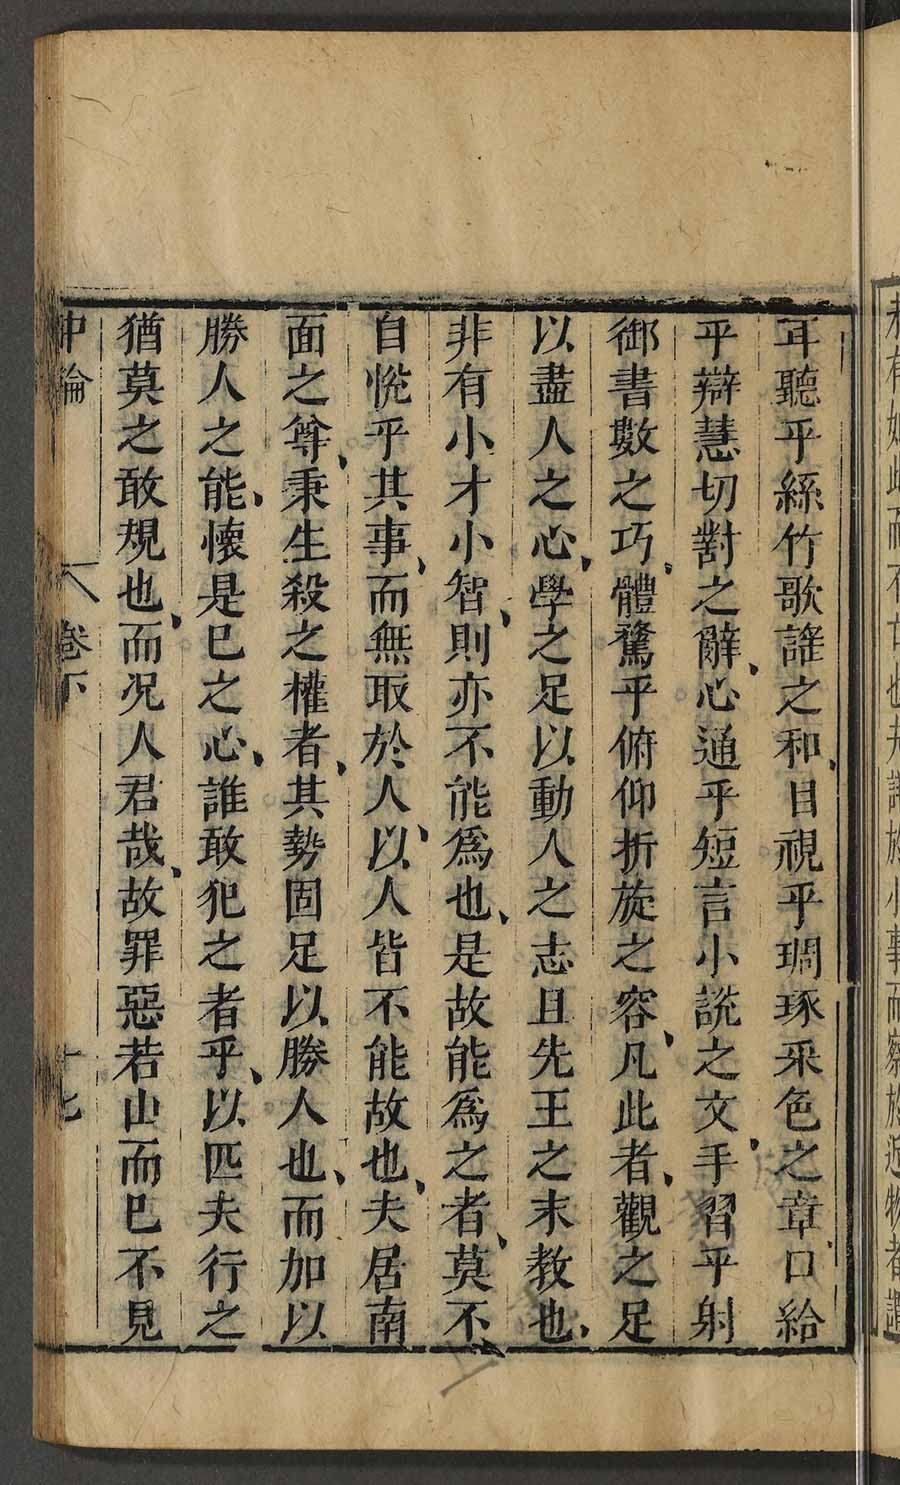 未有如此而不亡也夫詳於小事而察於近物者謂
耳聽乎絲竹歌謠之和、目視乎琱琢采色之章、口給
乎辯慧切對之辭、心通乎短言小說之文、手習乎射
御書數之巧、體騖乎俯仰折旋之容、凡此者、觀之足
以盡人之心、學之足以動人之志且先王之末教也、
非有小才小智、則亦不能爲也、是故能爲之者、莫不
自悅乎其事、而無取於人、以人皆不能故也、夫居南
面之尊、秉生殺之權者、其勢固足以勝人也、而加以
勝人之能、懷是巳之心、誰敢犯之者乎、以匹夫行之
猶莫之敢規也、而况人君哉、故罪惡若山而巳不見
中論 卷下 十七